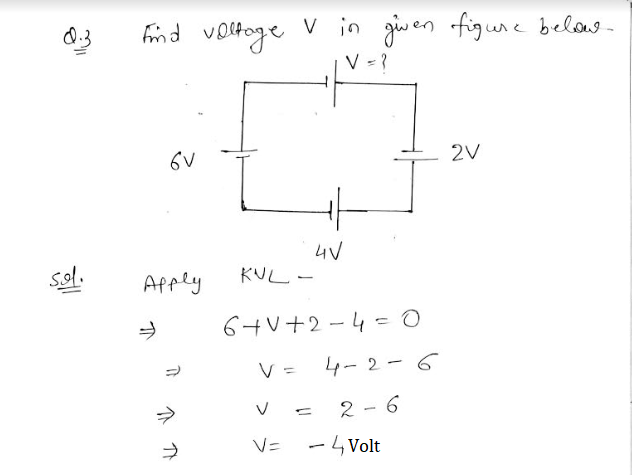 Q.3 Find voltage V in given figure below-
V = ?
6V
2V
4V
Sol. Apply KVL -
⇒ 6+V+2-4=0
⇒ V = 4-2-6
⇒ V = 2-6
⇒ V= -4 Volt